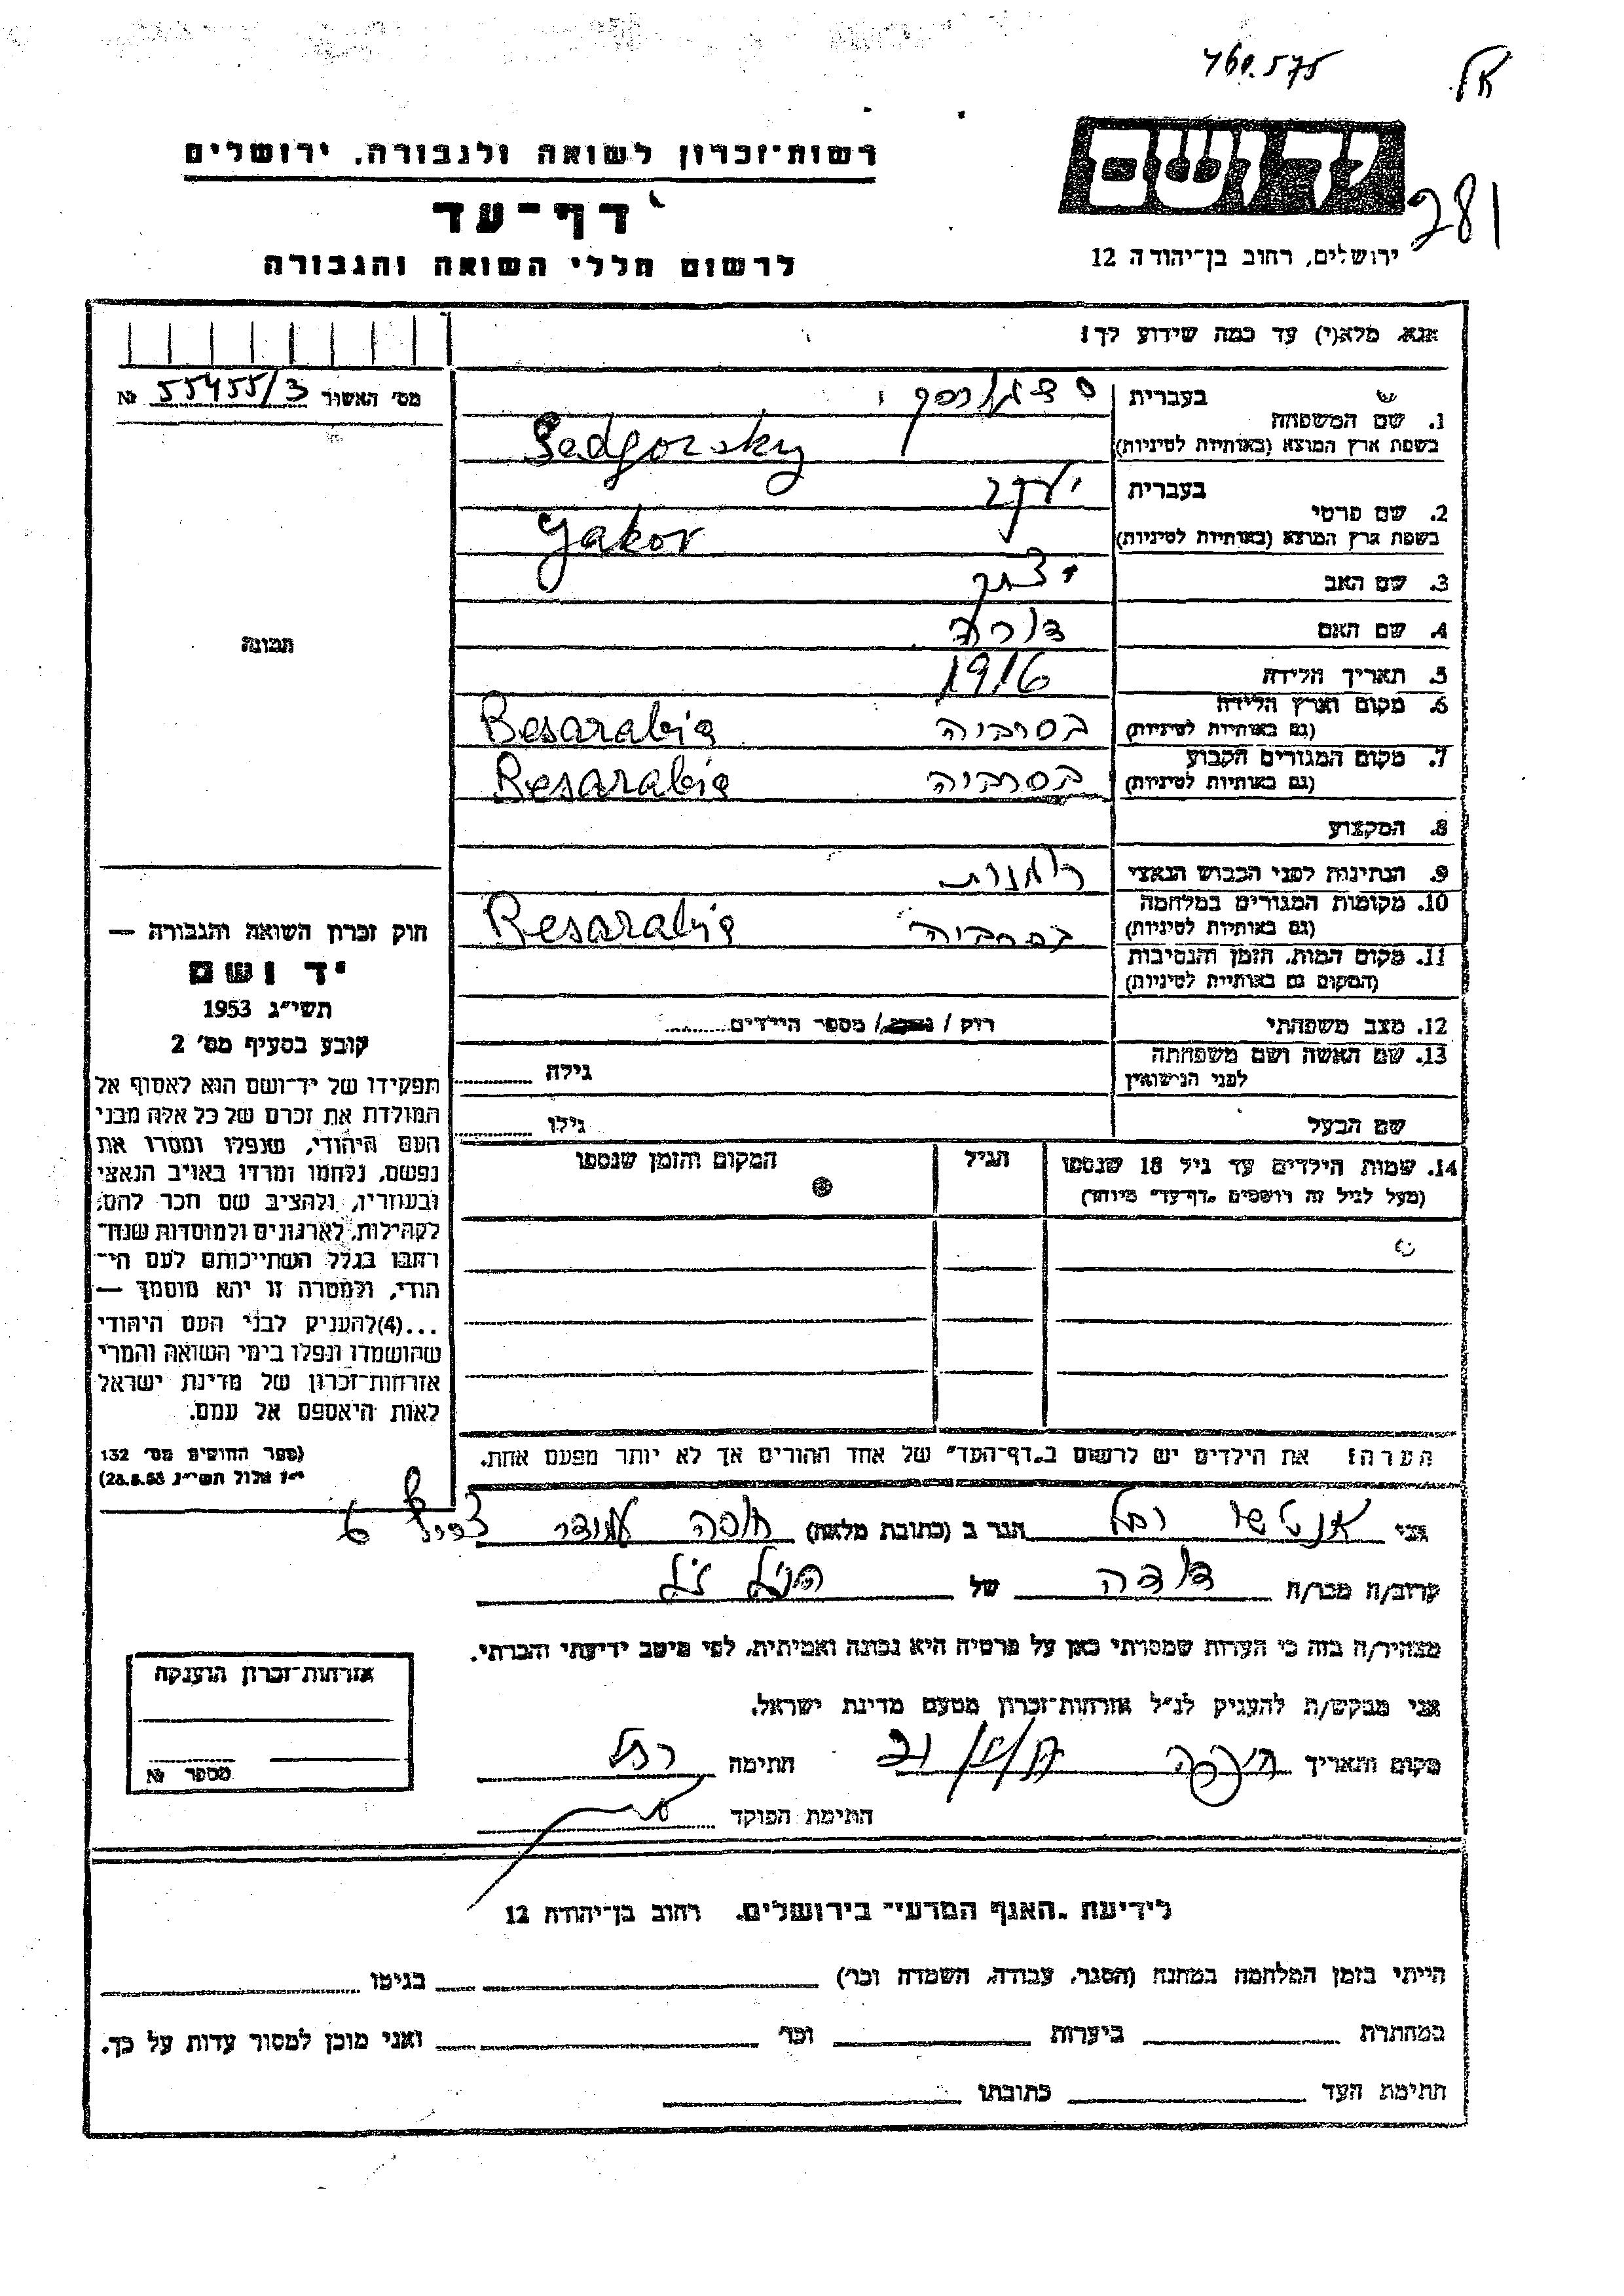 460.575
יד ושם
281
ירושלים, רחוב בן־יהודה 12
רשות־זכרון לשואה ולגבורה, ירושלים
דף־עד
לרשום חללי השואה והגבורה
אנא, מלא(י) עד כמה שידוע לך!
מס׳ האשור 55455/3 №
תמונה
1. שם המשפחה
בעברית
בשפת ארץ המוצא (באותיות לטיניות) Sedgorsky
2. שם פרטי
בעברית יעקב
בשפת ארץ המוצא (באותיות לטיניות) Yakov
3. שם האב יצחק
4. שם האם
5. תאריך הלידה 1916
6. מקום וארץ הלידה
(גם באותיות לטיניות) בסרביה Besarabia
7. מקום המגורים הקבוע
(גם באותיות לטיניות) בסרביה Besarabia
8. המקצוע
9. הנתינות לפני הכבוש הנאצי
10. מקומות המגורים במלחמה
(גם באותיות לטיניות) בסרביה Besarabia
11. מקום המות, הזמן והנסיבות
(המקום גם באותיות לטיניות)
12. מצב משפחתי רווק / נשוי / מספר הילדים
13. שם האשה ושם משפחתה
לפני הנישואין
גילה
שם הבעל גילו
14. שמות הילדים עד גיל 18 שנספו הגיל המקום והזמן שנספו
(מעל לגיל זה רושמים „דף־עד״ מיוחד)
הערה: את הילדים יש לרשום ב„דף־העד״ של אחד ההורים אך לא יותר מפעם אחת.
חוק זכרון השואה והגבורה —
יד ושם
תשי״ג 1953
קובע בסעיף מס׳ 2
תפקידו של יד־ושם הוא לאסוף אל
המולדת את זכרם של כל אלה מבני
העם היהודי, שנפלו ומסרו את
נפשם, נלחמו ומרדו באויב הנאצי
ובעוזריו, ולהציב שם וזכר להם,
לקהילות, לארגונים ולמוסדות שנח־
רבו בגלל השתייכותם לעם הי־
הודי, ולמטרה זו יהא מוסמך —
...(4) להעניק לבני העם היהודי
שהושמדו ונפלו בימי השואה והמרי
אזרחות־זכרון של מדינת ישראל
לאות היאספם אל עמם.
(ספר החוקים מס׳ 132
י״ז אלול תשי״ג 28.8.53)
אני רחל הגר ב (כתובת מלאה) חיפה 6
קרוב/ה מכר/ה דודה של הנ״ל ז״ל
מצהיר/ה בזה כי העדות שמסרתי כאן על פרטיה היא נכונה ואמיתית, לפי מיטב ידיעתי והכרתי.
אני מבקש/ת להעניק לנ״ל אזרחות־זכרון מטעם מדינת ישראל.
מקום ותאריך חיפה חתימה רחל
חתימת הפוקד
אזרחות־זכרון הוענקה
מספר №
לידיעת „האגף המדעי״ בירושלים, רחוב בן־יהודה 12
הייתי בזמן המלחמה במחנה (הסגר, עבודה, השמדה וכו׳) בגיטו
במחתרת ביערות וכו׳ ואני מוכן למסור עדות על כך.
חתימת העד כתובתו